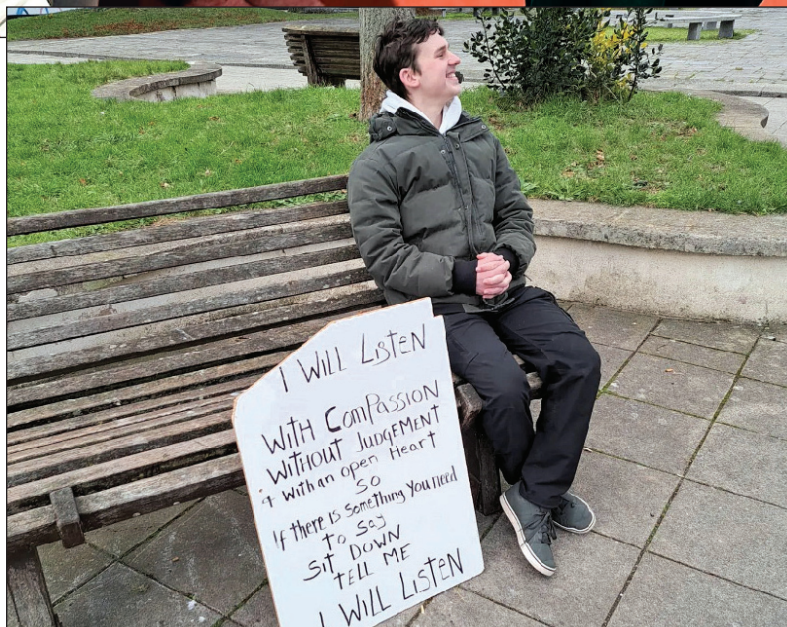 I WILL LISTEN
WITH COMPASSION
WITHOUT JUDGEMENT
+ with an open Heart
SO
If there is Something You need
To Say
SIT DOWN
TELL ME
I WILL LISTEN